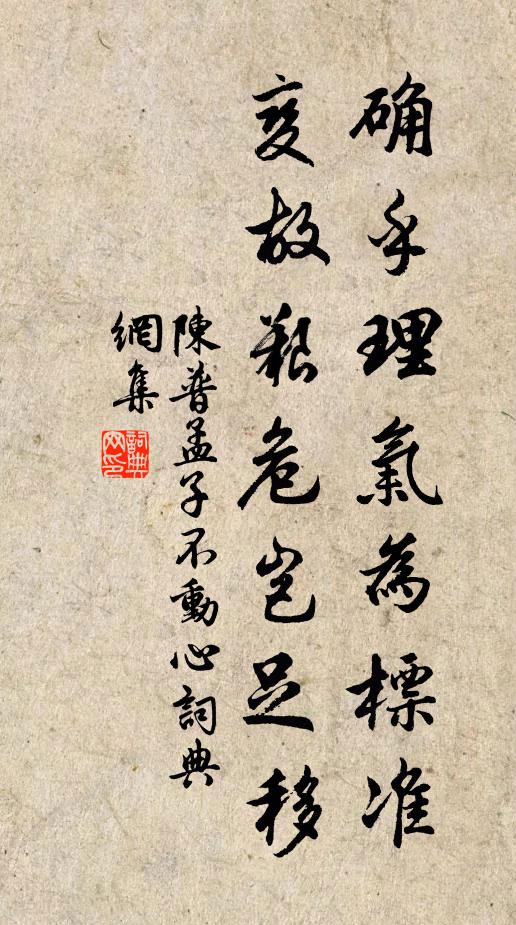 确乎理氣為標准
变故艱危岂足移
陳普孟子不動心詞典
網集
詞典
网印